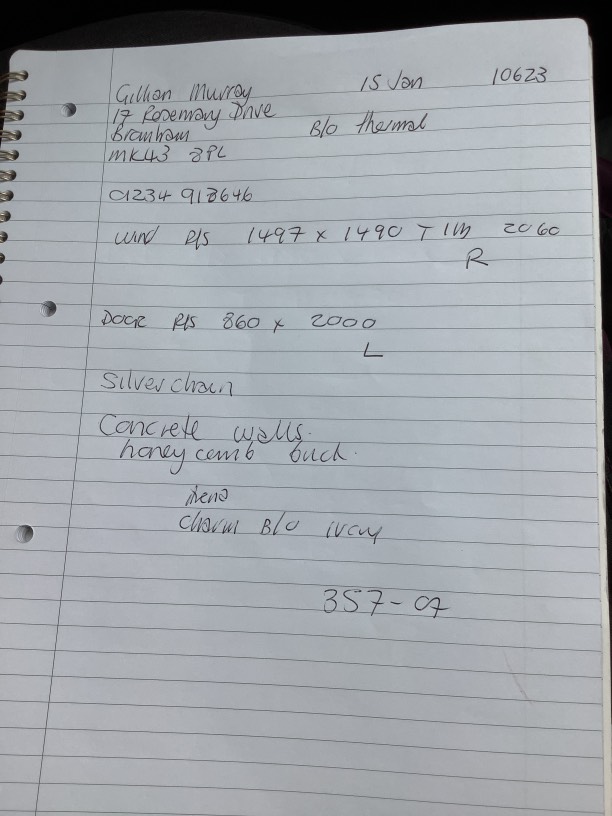 Gillian Murray 15 Jan 10623
17 Rosemary Drive
Bromham B/O thermal
MK43 8PL
01234 918646
wind R/S 1497 x 1490 T 1m 2060
R
Door R/S 860 x 2000
L
Silver chain
Concrete walls.
honeycomb
Charm B/O ivory
357-07